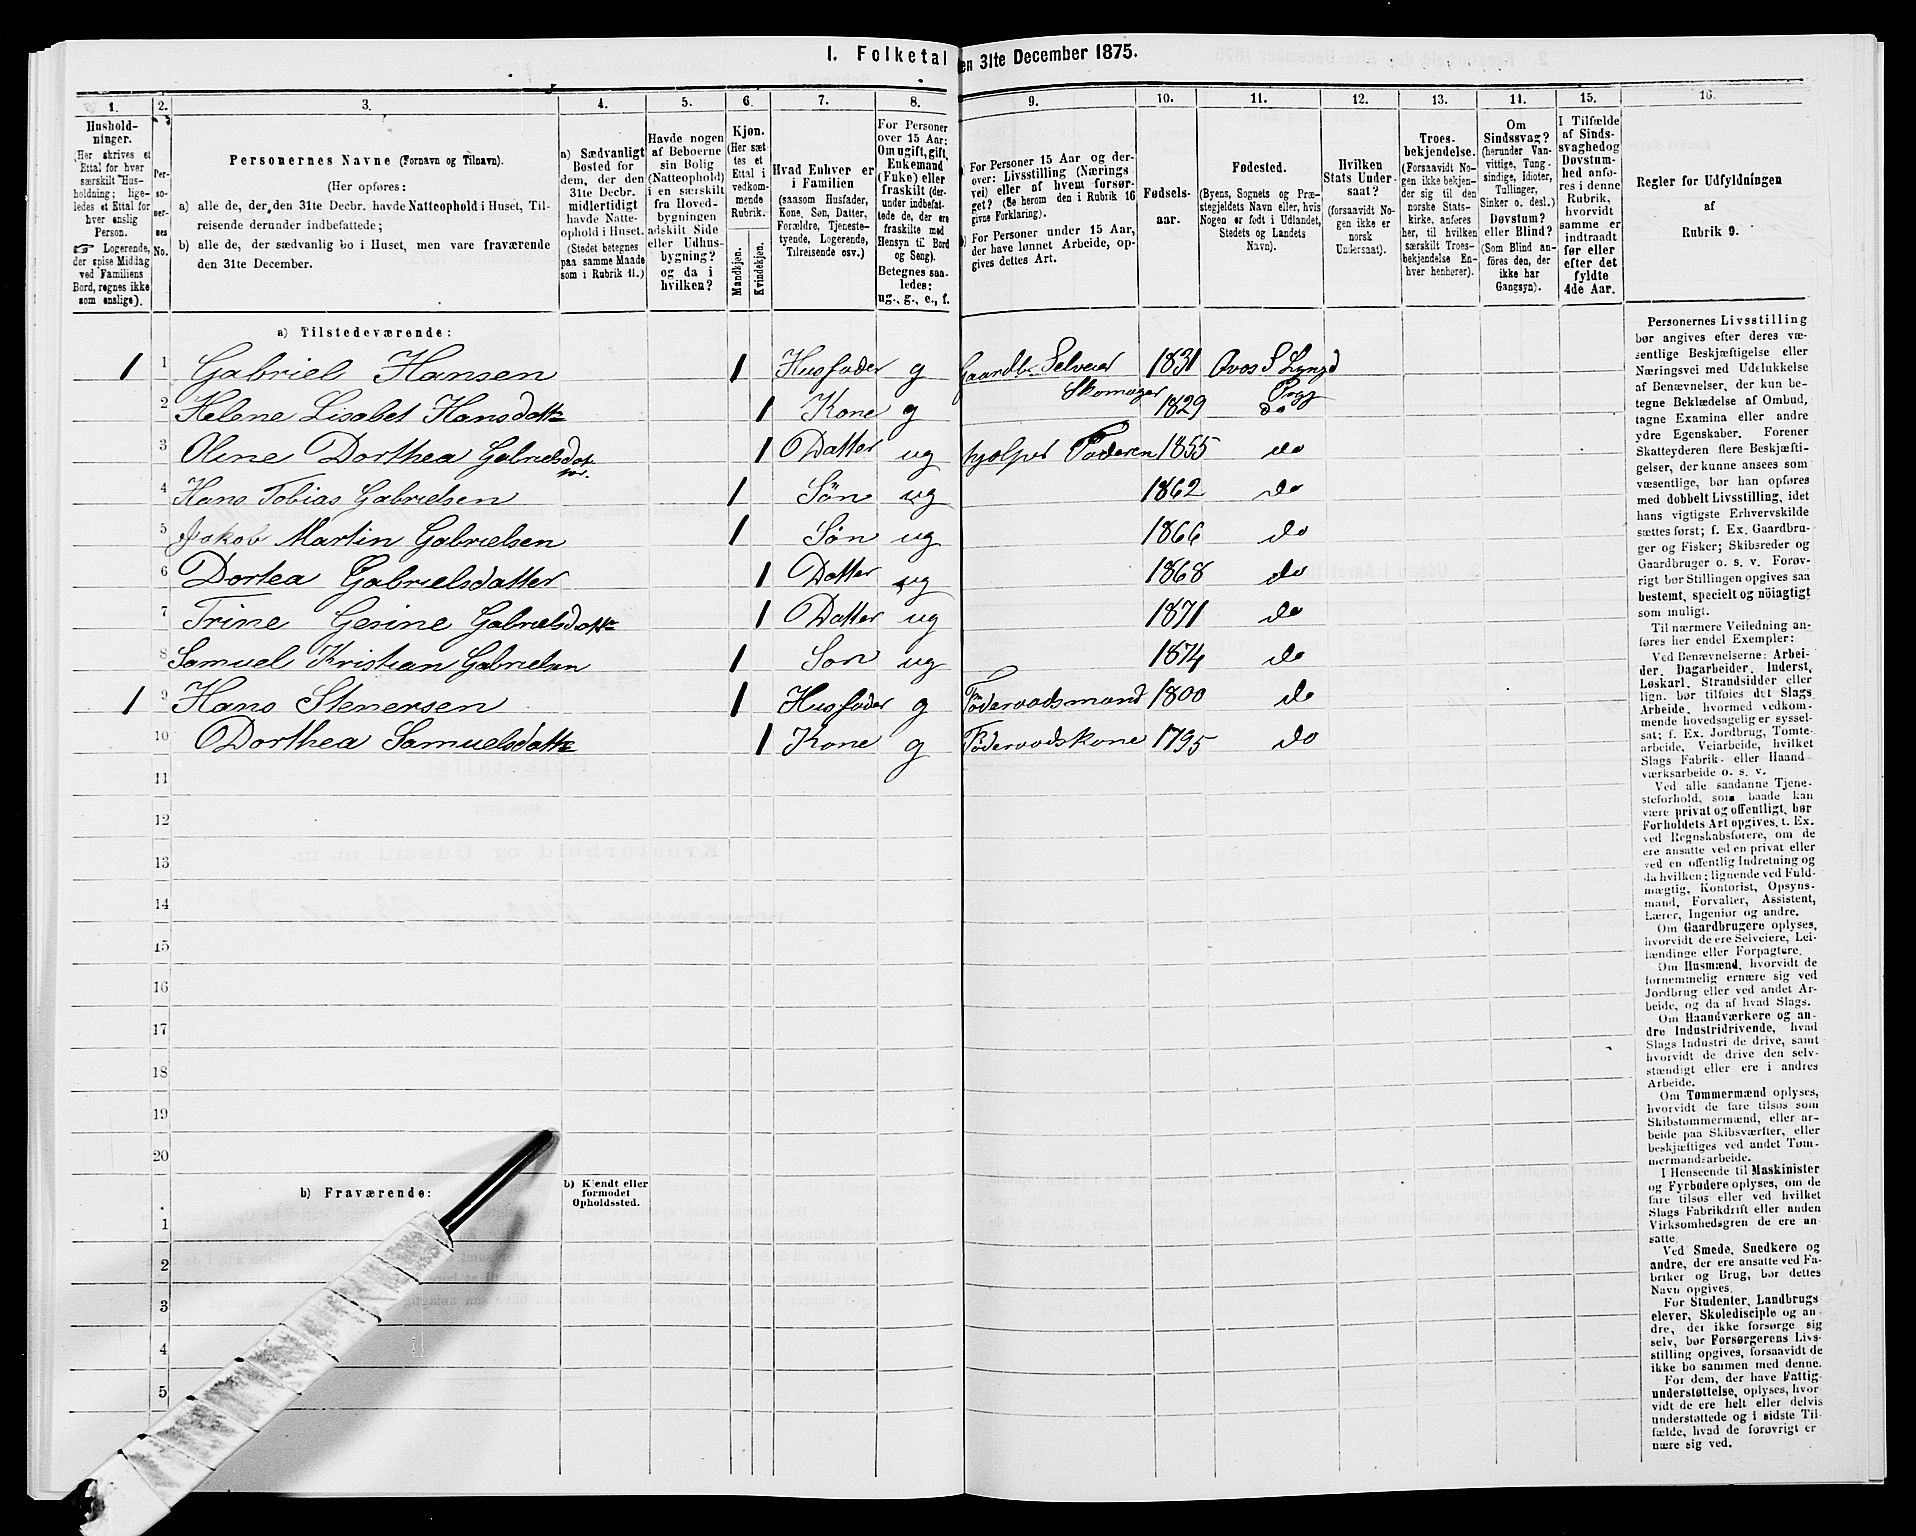 I. Folketal den 31te December 1875.
1. 2. 3. 4. 5. 6. 7. 8. 9. 10. 11. 12. 13. 14. 15. 16.
Hushold-
ninger.
(Her skrives et
Ettal for hver
særskilt Hus-
holdning; lige-
ledes et Ettal for
hver enslig
Person.
☞ Logerende,
der spise Middag
ved Familiens
Bord, regnes ikke
som enslige).
Per-
so-
ner-
nes
No.
Personernes Navne (Fornavn og Tilnavn).
(Her opføres:
a) alle de, der den 31te Decbr. havde Natteophold i Huset, Til-
reisende derunder indbefattede;
b) alle de, der sædvanlig bo i Huset, men vare fraværende
den 31te December.
a) Sædvanligt
Bosted for
dem, der den
31te Decbr.
midlertidigt
havde Natte-
ophold i Huset.
(Stedet betegnes
paa samme Maade
som i Rubrik 11.)
Havde nogen
af Beboerne
sin Bolig
(Natteophold)
i en særskilt
fra Hoved-
bygningen
adskilt Side
eller Udhus-
bygning?
og da i
hvilken?
Kjøn.
(Her sæt-
tes et
Ettal i
vedkom-
mende
Rubrik.
Mandkjøn.
Kvindekjøn.
Hvad Enhver er
i Familien
(saasom Husfader,
Kone, Søn, Datter,
Forældre, Tjeneste-
tyende, Logerende,
Tilreisende osv.)
For Personer
over 15 Aar:
Om ugift, gift,
Enkemand
(Fuke) eller
fraskilt (der-
under indbefat-
tede de, der ere
fraskilte med
Hensyn til Bord
og Seng).
Betegnes saa-
ledes:
ug., g., e., f.
a) For Personer 15 Aar og der-
over: Livsstilling (Nærings
vei) eller af hvem forsør-
get? (Se herom den i Rubrik 16
givne Forklaring).
b) For Personer under 15 Aar,
der have lønnet Arbeide, op-
gives dettes Art.
Fødsels-
aar.
Fødested.
(Byens, Sognets og Præ-
stegjeldets Navn eller, hvis
Nogen er født i Udlandet,
Stedets og Landets
Navn).
Hvilken
Stats Under-
saat?
(forsaavidt No-
gen ikke er
norsk
Undersaat).
Troes-
bekjendelse.
(Forsaavidt No-
gen ikke bekjen-
der sig til den
norske Stats-
kirke, anføres
her, til hvilken
særskilt Troes-
bekjendelse En-
hver henhører).
Om
Sindssvag?
(herunder Van-
vittige, Tung-
sindige, Idioter,
Tullinger,
Sinker o. desl.)
Døvstum?
eller Blind?
(Som Blind an-
føres den, der
ikke har
Gangsyn).
I Tilfælde
af Sinds-
svaghed og
Døvstum-
hed anfø-
res i denne
Rubrik,
hvorvidt
samme er
indtraadt
før eller
efter det
fyldte
4de Aar.
Regler for Udfyldningen
af
Rubrik 9.
a) Tilstedeværende:
1 1 Gabriel Hansen 1 Husfader g Gaardb. Selveier 1831 S Lyngd
Skomager
2 Helene Lisabet Hansdatt 1 Kone g 1829 do
3 Oline Dorthea Gabrielsdat 1 Datter ug hjælper Faderen 1855 do
ter.
4 Hans Tobias Gabrielsen 1 Søn ug 1862 do
5 Jakob Martin Gabrielsen 1 Søn ug 1866 do
6 Dortea Gabrielsdatter 1 Datter ug 1868 do
7 Trine Gesine Gabrielsdatt 1 Datter ug 1871 do
8 Samuel Kristian Gabrielsen 1 Søn ug 1874 do
1 9 Hans Stenersen 1 Husfader g Føderaadsmand 1800 do
10 Dorthea Samuelsdatt 1 Kone g Føderaadskone 1795 do
11
12
13
14
15
16
17
18
19
20
b) Fraværende:
b) Kjendt eller
formodet
Opholdssted.
1
2
3
4
5
Personernes Livsstilling
bør angives efter deres væ-
sentlige Beskjæftigelse eller
Næringsvei med Udelukkelse
af Benævnelser, der kun be-
tegne Beklædelse af Ombud,
tagne Examina eller andre
ydre Egenskaber. Forener
Skatteyderen flere Beskjæfti-
gelser, der kunne ansees som
væsentlige, bør han opføres
med dobbelt Livsstilling, idet
hans vigtigste Erhvervskilde
sættes først; f. Ex. Gaardbru-
ger og Fisker; Skibsreder og
Gaardbruger o. s. v. Forøv-
rigt bør Stillingen opgives saa
bestemt, specielt og nöiagtigt
som muligt.
Til nærmere Veiledning an-
føres her endel Exempler:
Ved Benævnelserne: Arbei-
der, Dagarbeider, Inderst,
Løskarl, Strandsidder eller
lign. bør tilføies det Slags
Arbeide, hvormed vedkom-
mende hovedsagelig er syssel-
sat; f. Ex. Jordbrug, Tomte-
arbeide, Veiarbeide, hvilket
Slags Fabrik- eller Haand
værksarbeide o. s. v.
Ved alle saadanne Tjene-
steforhold, som baade kan
være privat og offentligt, bør
Forholdets Art opgives, t. Ex.
ved Regnskabsførere, om de
ere ansatte ved en privat eller
ved en offentlig Indretning og
da hvilken; lignende ved Fuld-
mægtig, Kontorist, Opsyns-
mand, Forvalter, Assistent,
Lærer, Ingeniør og andre.
Om Gaardbrugere oplyses,
hvorvidt de ere Selveiere, Lei-
lændinge eller Forpagtere.
Om Husmænd, hvorvidt de
fornemmelig ernære sig ved
Jordbrug eller ved andet Ar-
beide, og da af hvad Slags.
Om Haandværkere og an-
dre Industridrivende, hvad
Slags Industri de drive, samt
hvorvidt de drive den selv-
stændigt eller ere i andres
Arbeide.
Om Tømmermænd oplyses,
hvorvidt de fare tilsøs som
Skibstømmermænd, eller ar-
beide paa Skibsværfter, eller
beskjæftiges ved andet Tøm-
mermandsarbeide.
I Henseende til Maskinister
og Fyrbødere oplyses, om de
fare tilsøs eller ved hvilket
Slags Fabrikdrift eller anden
Virksomhedsgren de ere an-
satte.
Ved Smede, Snedkere og
andre, der ere ansatte ved Fa-
briker og Brug, bør dettes
Navn opgives.
For Studenter, Landbrugs
elever, Skoledisciple og an-
dre, der ikke forsørge sig
selv, bør Forsørgerens Livs-
stilling opgives, forsaavidt de
ikke bo sammen med denne.
For dem, der have Fattig-
understøttelse, oplyses, hvor-
vidt de ere helt eller delvis
understøttede og i sidste Til-
fælde, hvad de forøvrigt er
nære sig ved.